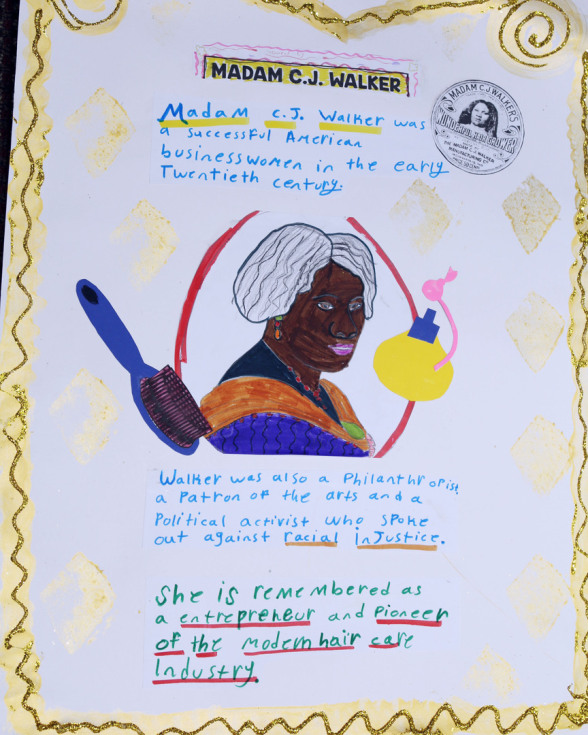 MADAM C.J. WALKER
MADAM C.J WALKER'S
WONDERFUL HAIR GROWER
THE MADAM C.J. WALKER
MANUFACTURING CO.
Madam C.J. Walker was
a successful American
businesswomen in the early
Twentieth century.
Walker was also a Philanthropist,
a Patron of the arts and a
Political activist who spoke
out against racial inJustice.
She is remembered as
a entrepreneur and Pioneer
of the modern hair care
Industry.